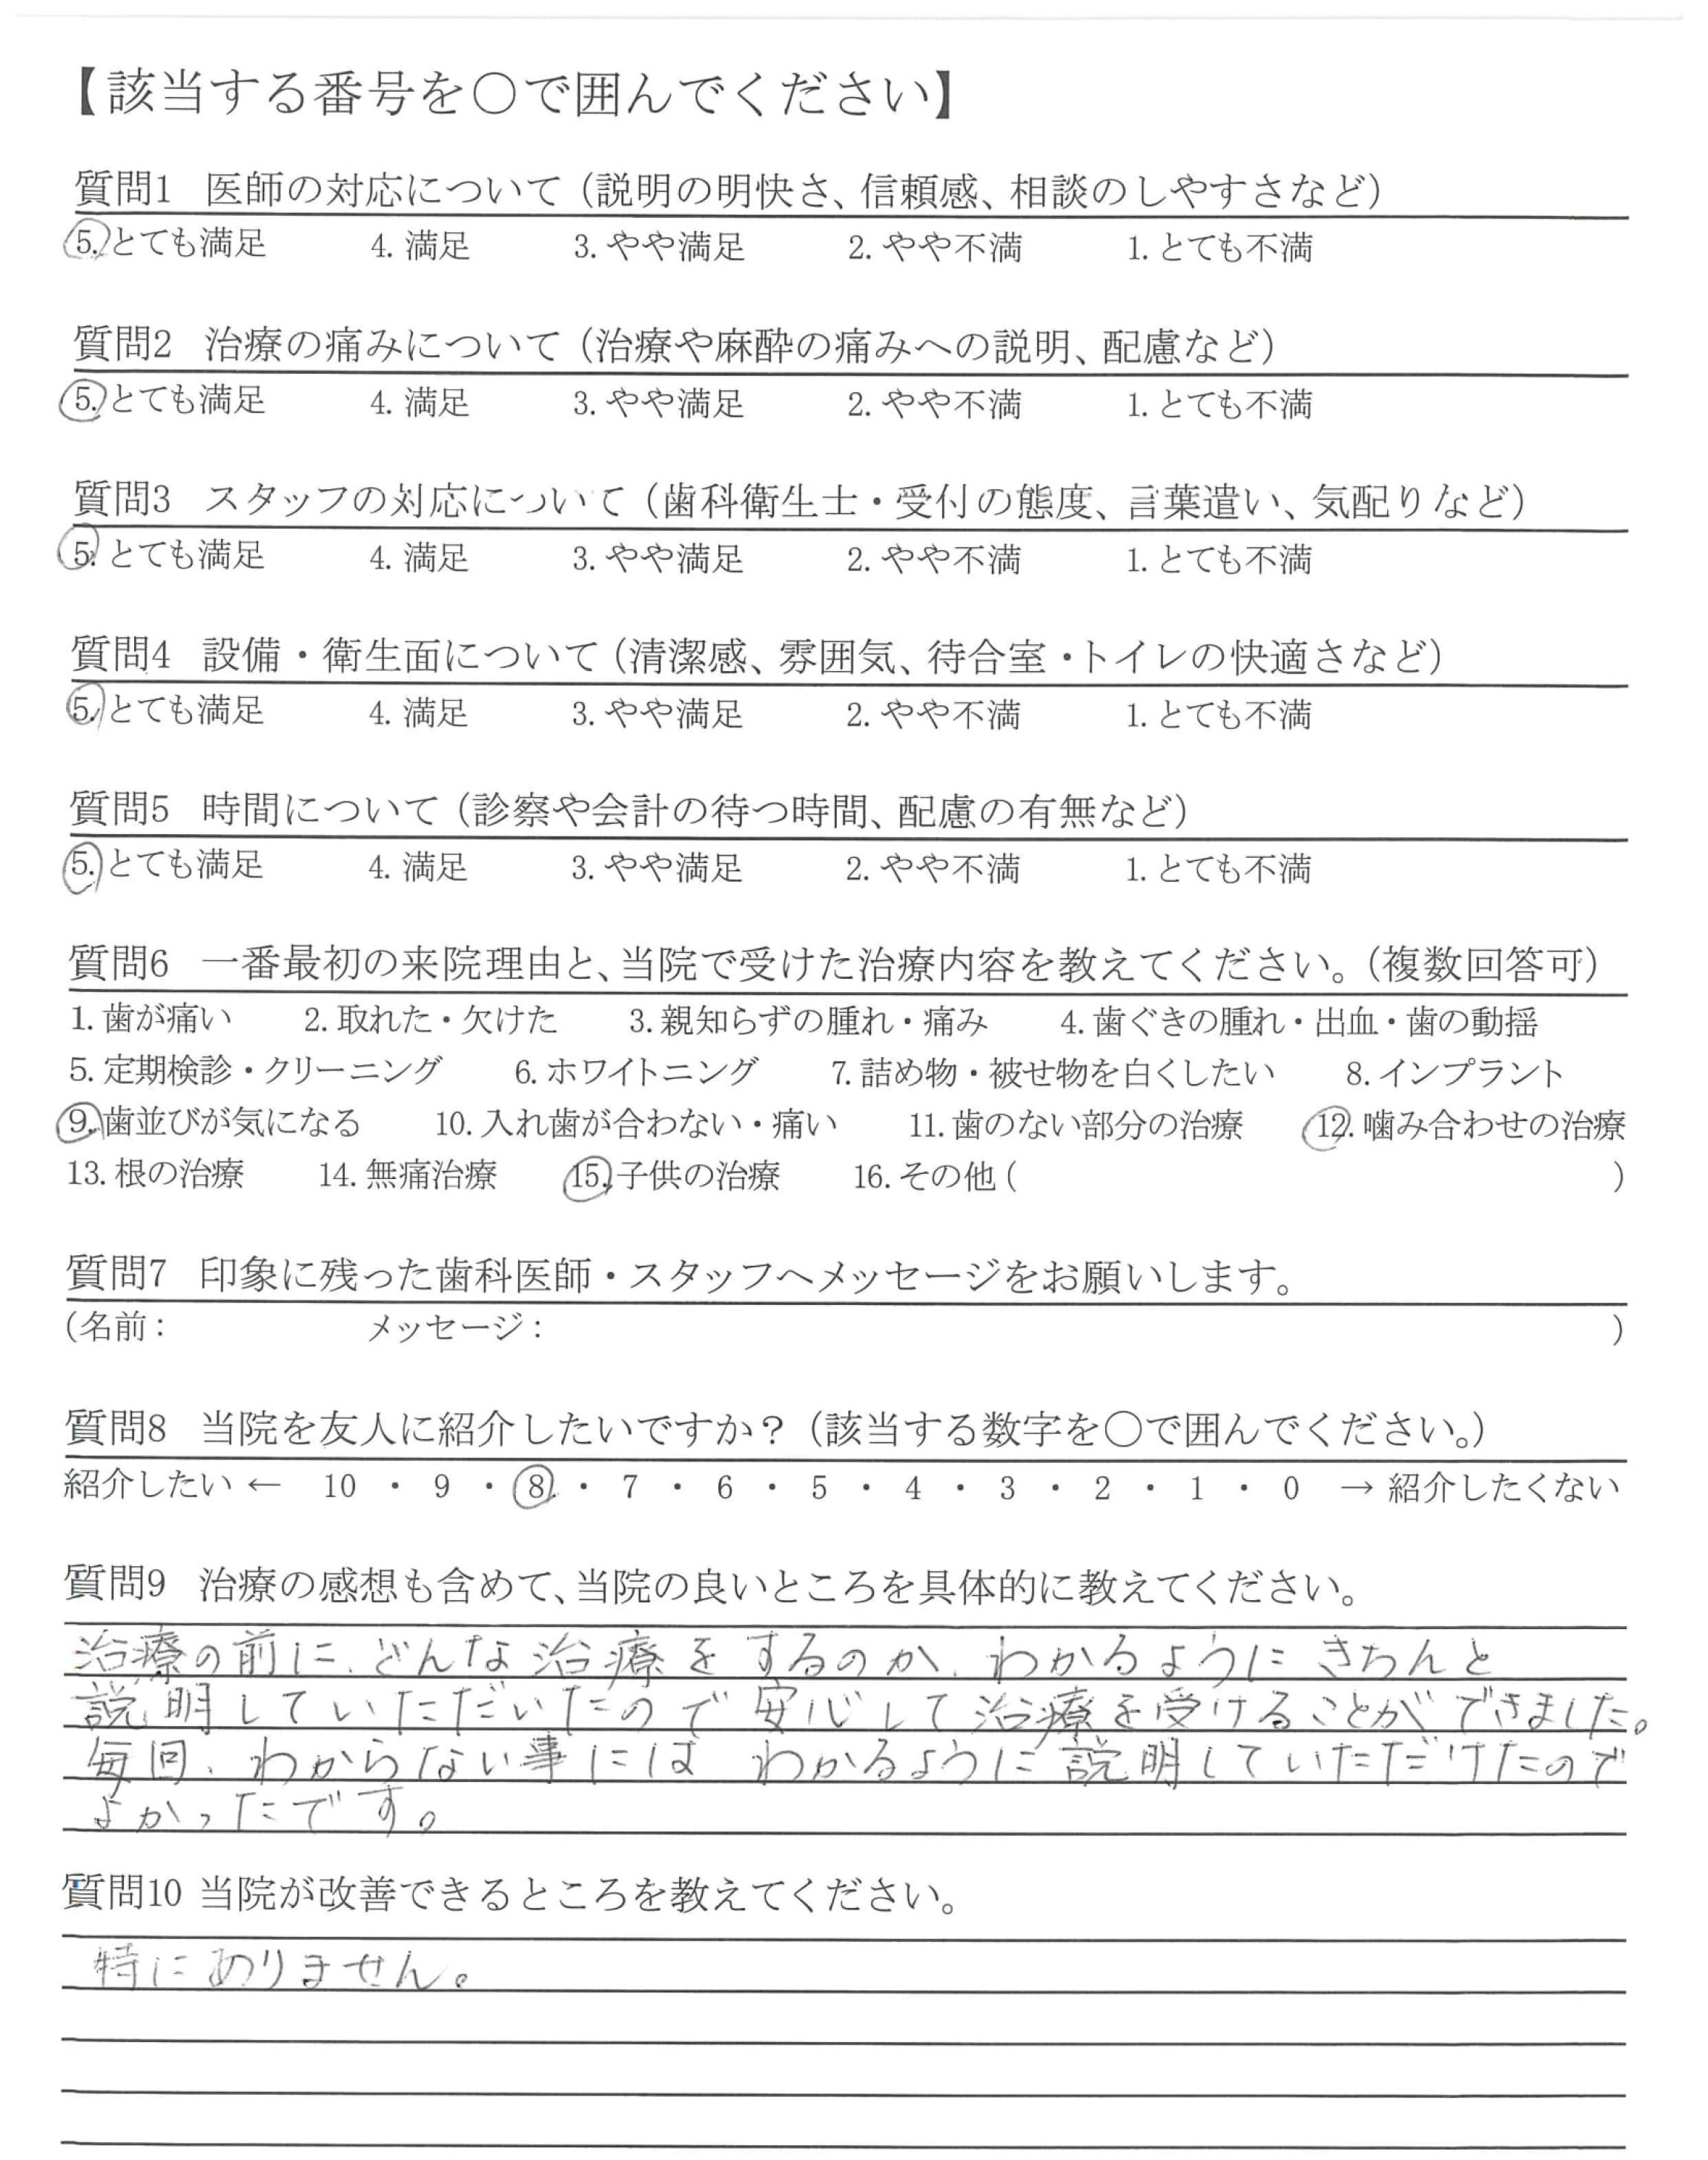 【該当する番号を○で囲んでください】
質問1 医師の対応について（説明の明快さ、信頼感、相談のしやすさなど）
5. とても満足 4. 満足 3. やや満足 2. やや不満 1. とても不満
質問2 治療の痛みについて（治療や麻酔の痛みへの説明、配慮など）
5. とても満足 4. 満足 3. やや満足 2. やや不満 1. とても不満
質問3 スタッフの対応について（歯科衛生士・受付の態度、言葉遣い、気配りなど）
5. とても満足 4. 満足 3. やや満足 2. やや不満 1. とても不満
質問4 設備・衛生面について（清潔感、雰囲気、待合室・トイレの快適さなど）
5. とても満足 4. 満足 3. やや満足 2. やや不満 1. とても不満
質問5 時間について（診察や会計の待つ時間、配慮の有無など）
5. とても満足 4. 満足 3. やや満足 2. やや不満 1. とても不満
質問6 一番最初の来院理由と、当院で受けた治療内容を教えてください。（複数回答可）
1. 歯が痛い 2. 取れた・欠けた 3. 親知らずの腫れ・痛み 4. 歯ぐきの腫れ・出血・歯の動揺
5. 定期検診・クリーニング 6. ホワイトニング 7. 詰め物・被せ物を白くしたい 8. インプラント
9. 歯並びが気になる 10. 入れ歯が合わない・痛い 11. 歯のない部分の治療 12. 噛み合わせの治療
13. 根の治療 14. 無痛治療 15. 子供の治療 16. その他（ ）
質問7 印象に残った歯科医師・スタッフへメッセージをお願いします。
（名前： メッセージ： ）
質問8 当院を友人に紹介したいですか？（該当する数字を○で囲んでください。）
紹介したい ← 10 ・ 9 ・ 8 ・ 7 ・ 6 ・ 5 ・ 4 ・ 3 ・ 2 ・ 1 ・ 0 → 紹介したくない
質問9 治療の感想も含めて、当院の良いところを具体的に教えてください。
治療の前に、どんな治療をするのか、わかるようにきちんと
説明していただいたので安心して治療を受けることができました。
毎回、わからない事にはわかるように説明していただけたので
よかったです。
質問10 当院が改善できるところを教えてください。
特にありません。